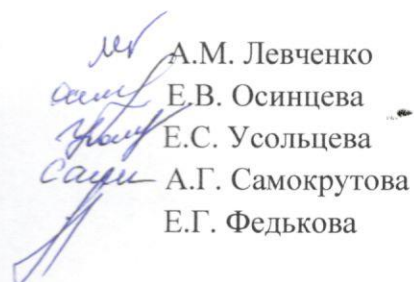 А.М. Левченко
Е.В. Осинцева
Е.С. Усольцева
А.Г. Самокрутова
Е.Г. Федькова